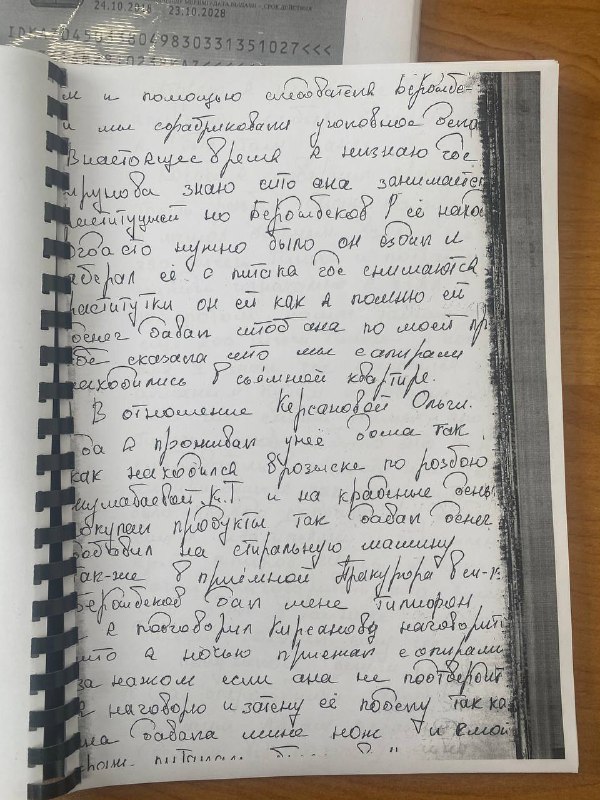 24.10.2018 23.10.2028
м и помощью следователя Берймбе-
и мы сфабриковали уголовное дела
В настоящее время я низнаю где
знаю что ана занимается
но Берймбеков её
нужно было он ездил и
аберал её с питака где снимаются
раститутки он ей как я помню ей
денег давал штоб ана по моей пр
сказала что мы сапирами
находились в сьёмной квартире.
В отношение Керсановой Ольги.
да я проживал унеё дома так
как находился врозыске по розбою
К.Т. и на краденые день
окупал продукты так давал денег
добавил на стиральную машину
так-же в приёмной Пракурора
Берймбеков дал мене тилифон
я подговорил Кирсанову наговорить
што я ночью приежал сапирами
за нажом если ана не подтвердит
я наговорю и затену её поделу так ка
на давала мине нож и